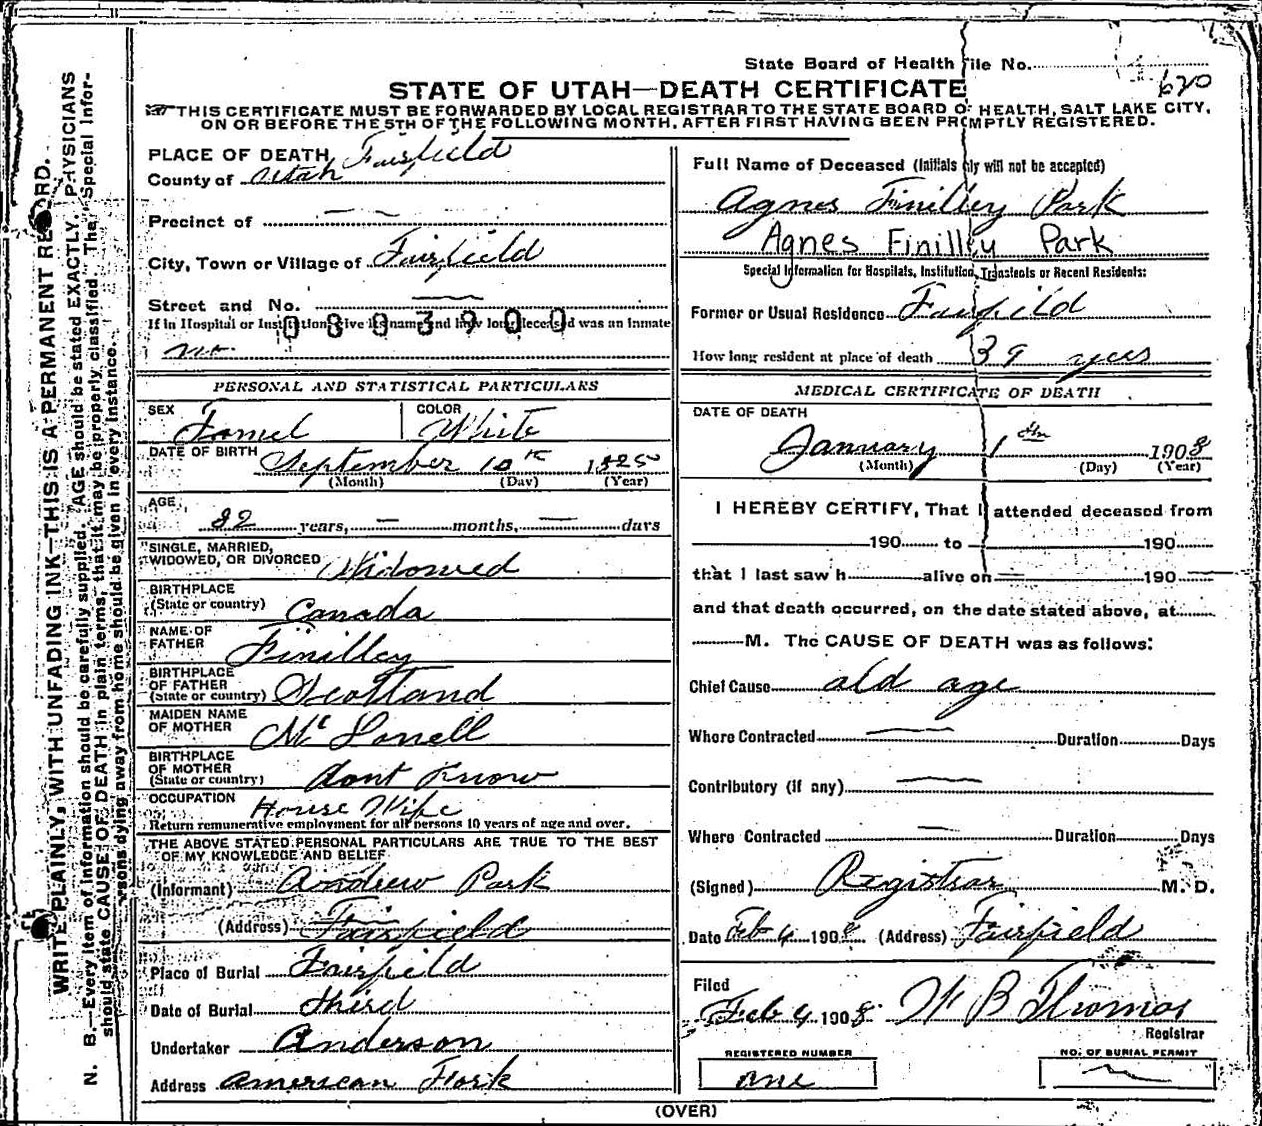 State Board of Health File No.
620
STATE OF UTAH—DEATH CERTIFICATE
THIS CERTIFICATE MUST BE FORWARDED BY LOCAL REGISTRAR TO THE STATE BOARD OF HEALTH, SALT LAKE CITY,
ON OR BEFORE THE 5TH OF THE FOLLOWING MONTH, AFTER FIRST HAVING BEEN PROMPTLY REGISTERED.
WRITE PLAINLY, WITH UNFADING INK—THIS IS A PERMANENT RECORD.
N. B.—Every item of information should be carefully supplied. AGE should be stated EXACTLY. PHYSICIANS
should state CAUSE OF DEATH in plain terms, that it may be properly classified. The "Special Infor-
persons dying away from home should be given in every instance.
PLACE OF DEATH Fairfield
County of Utah
Precinct of
City, Town or Village of Fairfield
Street and No.
If in Hospital or Institution give its name and how long deceased was an inmate
no.
PERSONAL AND STATISTICAL PARTICULARS
SEX Famel COLOR White
DATE OF BIRTH September 10th 1825
(Month) (Day) (Year)
AGE 82 years, — months, — days
SINGLE, MARRIED,
WIDOWED, OR DIVORCED Widowed
BIRTHPLACE
(State or country) Canada
NAME OF
FATHER Finilley
BIRTHPLACE
OF FATHER
(State or country) Scotland
MAIDEN NAME
OF MOTHER
BIRTHPLACE
OF MOTHER
(State or country) dont Know
OCCUPATION House Wife
Return remunerative employment for all persons 10 years of age and over.
THE ABOVE STATED PERSONAL PARTICULARS ARE TRUE TO THE BEST
OF MY KNOWLEDGE AND BELIEF
(Informant) Andrew Park
(Address) Fairfield
Place of Burial Fairfield
Date of Burial third
Undertaker Anderson
Address American Fork
Full Name of Deceased (Initials only will not be accepted)
Agnes Finilley Park
Agnes Finilley Park
Special Information for Hospitals, Institution, Transients or Recent Residents:
Former or Usual Residence Fairfild
How long resident at place of death 39 yees
MEDICAL CERTIFICATE OF DEATH
DATE OF DEATH
January 1th 1908
(Month) (Day) (Year)
I HEREBY CERTIFY, That I attended deceased from
190 to 190
that I last saw h alive on 190
and that death occurred, on the date stated above, at
M. The CAUSE OF DEATH was as follows:
Chief Cause old age
Where Contracted — Duration Days
Contributory (if any) —
Where Contracted — Duration Days
(Signed) Registrar M. D.
Date Feb 4 1908 (Address) Fairfield
Filed
Feb 4 1908 W B Thomas
Registrar
REGISTERED NUMBER
one
NO. OF BURIAL PERMIT
(OVER)